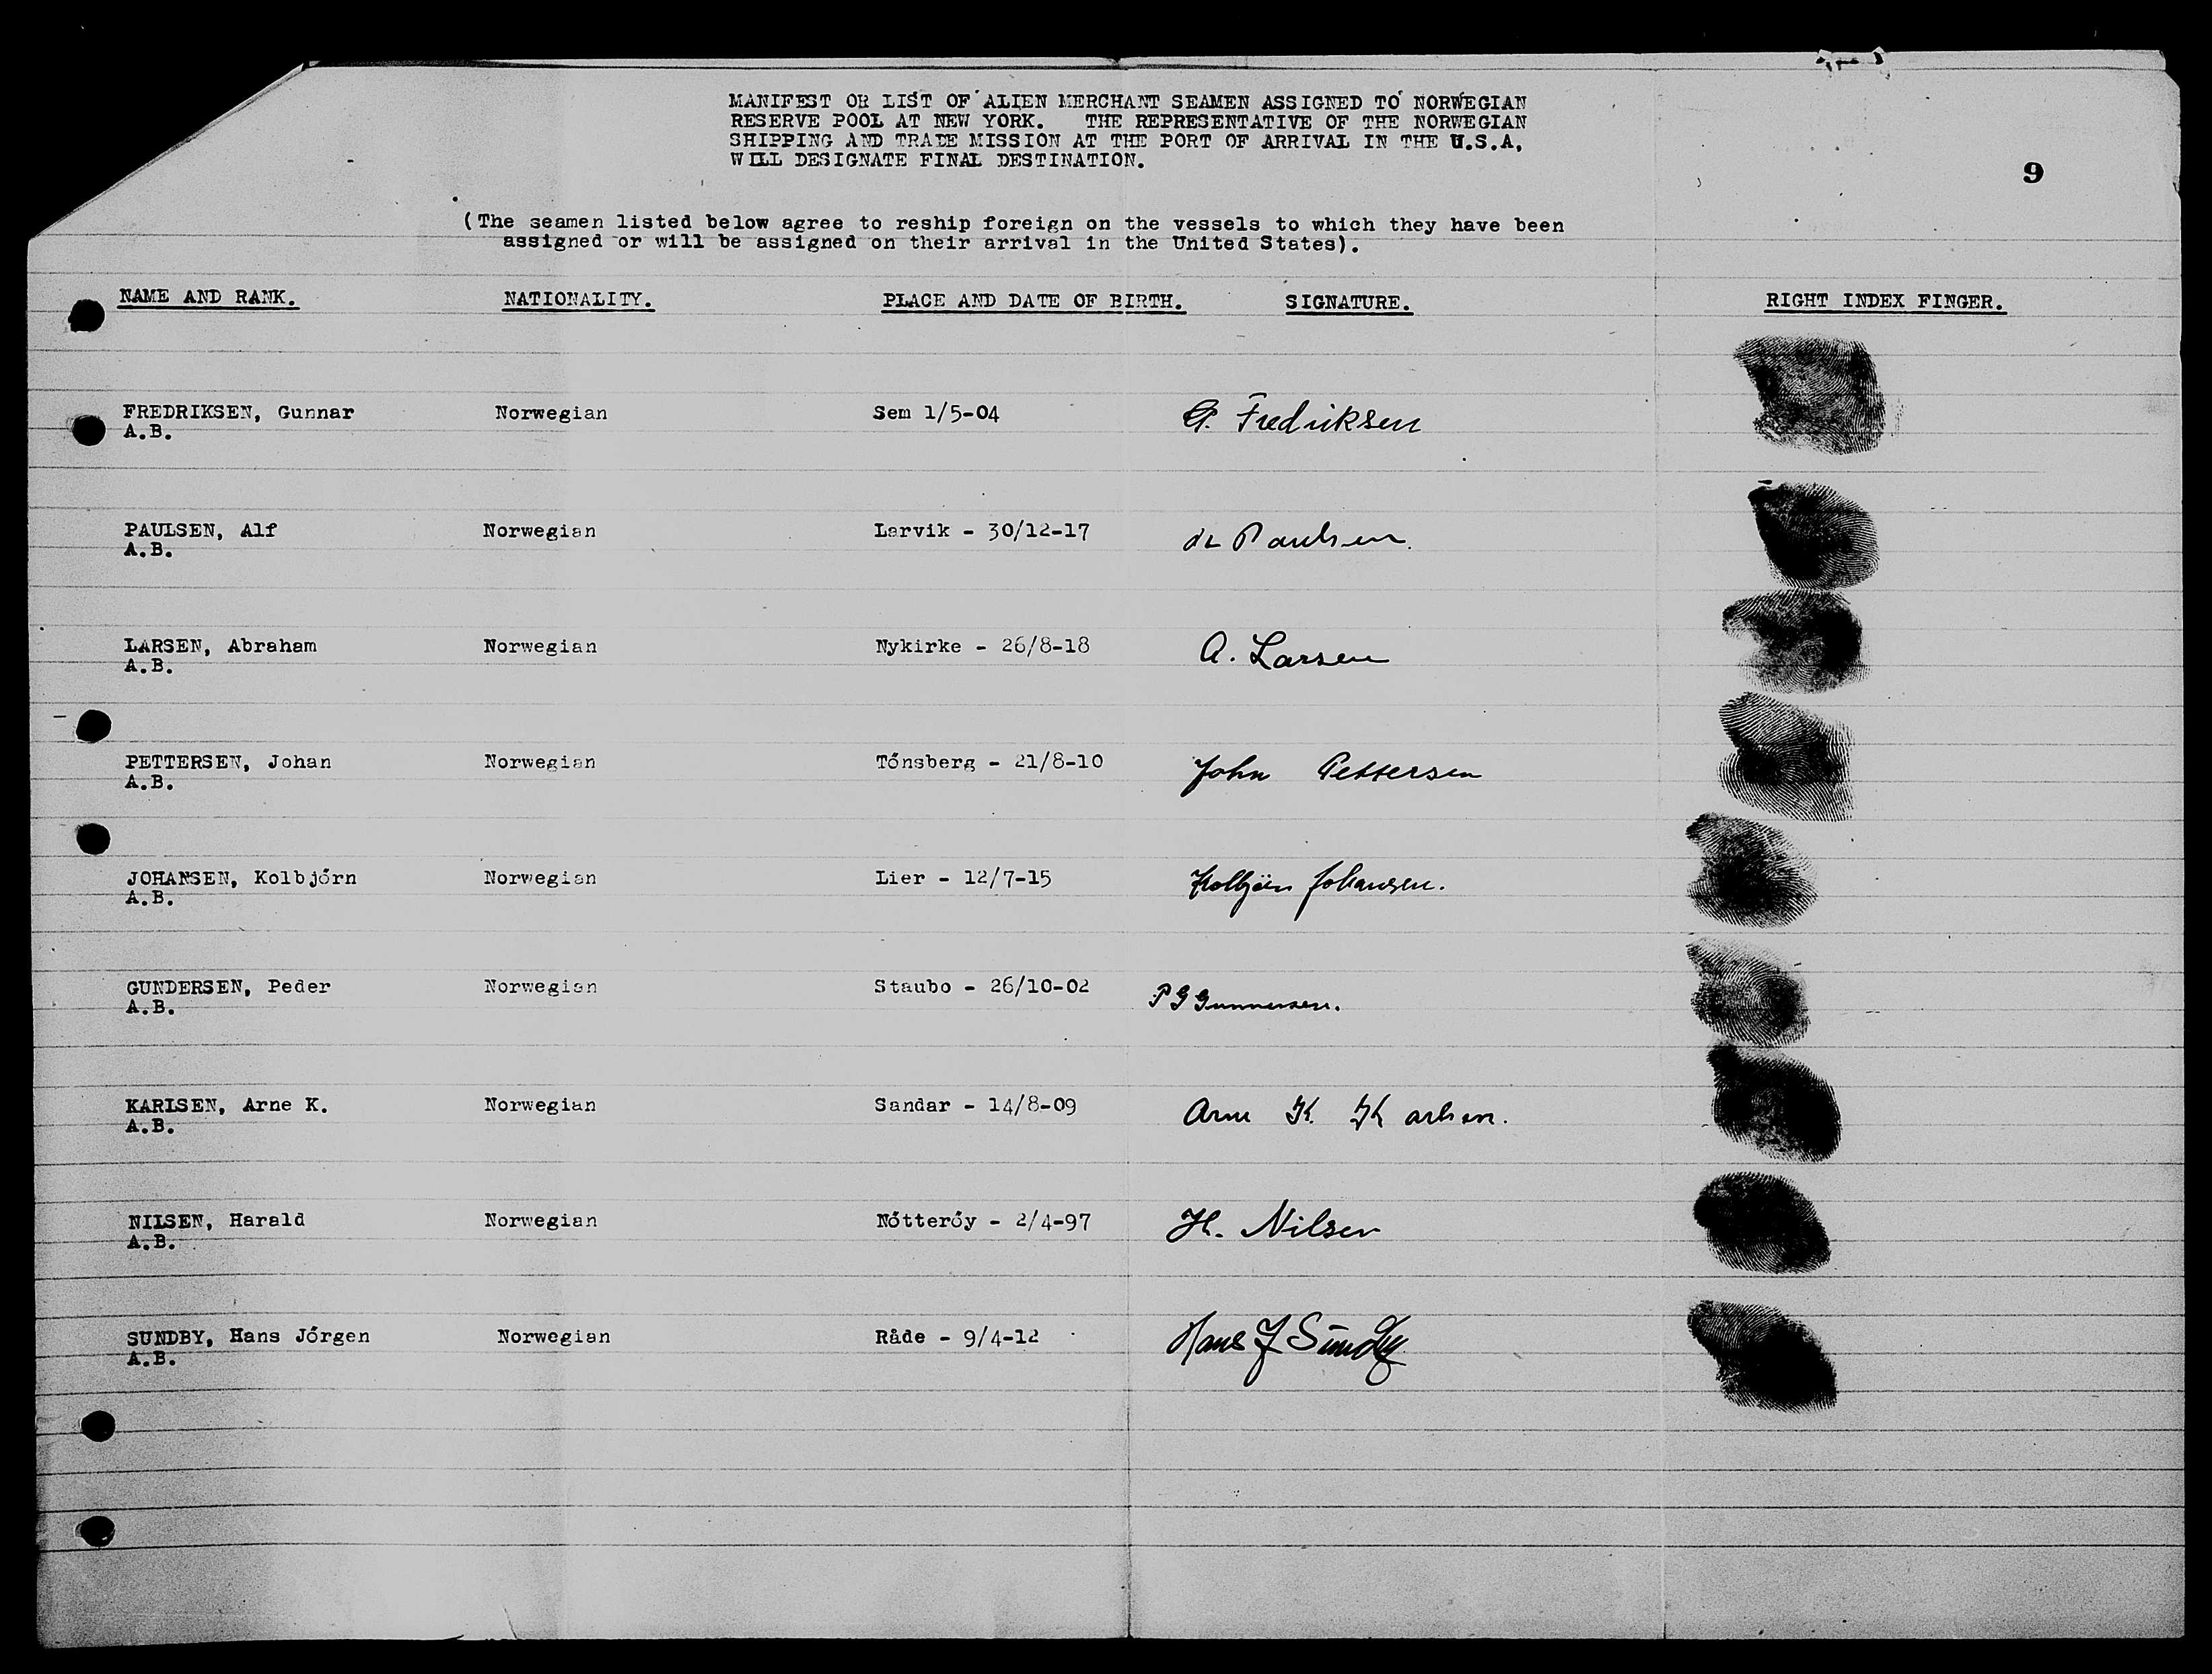 MANIFEST OR LIST OF ALIEN MERCHANT SEAMEN ASSIGNED TO NORWEGIAN
RESERVE POOL AT NEW YORK. THE REPRESENTATIVE OF THE NORWEGIAN
SHIPPING AND TRADE MISSION AT THE PORT OF ARRIVAL IN THE U.S.A.
WILL DESIGNATE FINAL DESTINATION.
9
(The seamen listed below agree to reship foreign on the vessels to which they have been
assigned or will be assigned on their arrival in the United States).
NAME AND RANK. NATIONALITY. PLACE AND DATE OF BIRTH. SIGNATURE. RIGHT INDEX FINGER.
FREDRIKSEN, Gunnar Norwegian Sem 1/5-04 G. Fredriksen
A.B.
PAULSEN, Alf Norwegian Larvik - 30/12-17 Paulsen.
A.B.
LARSEN, Abraham Norwegian Nykirke - 26/8-18 A. Larsen
A.B.
PETTERSEN, Johan Norwegian Tónsberg - 21/8-10 John Pettersen
A.B.
JOHANSEN, Kolbjórn Norwegian Lier - 12/7-15 Kolbjörn Johansen.
A.B.
GUNDERSEN, Peder Norwegian Staubo - 26/10-02 P G Gunnersen.
A.B.
KARLSEN, Arne K. Norwegian Sandar - 14/8-09 Arne K. Karlsen.
A.B.
NILSEN, Harald Norwegian Nótteróy - 2/4-97 H. Nilsen
A.B.
SUNDBY, Hans Jórgen Norwegian Råde - 9/4-12 Hans J Sundby
A.B.